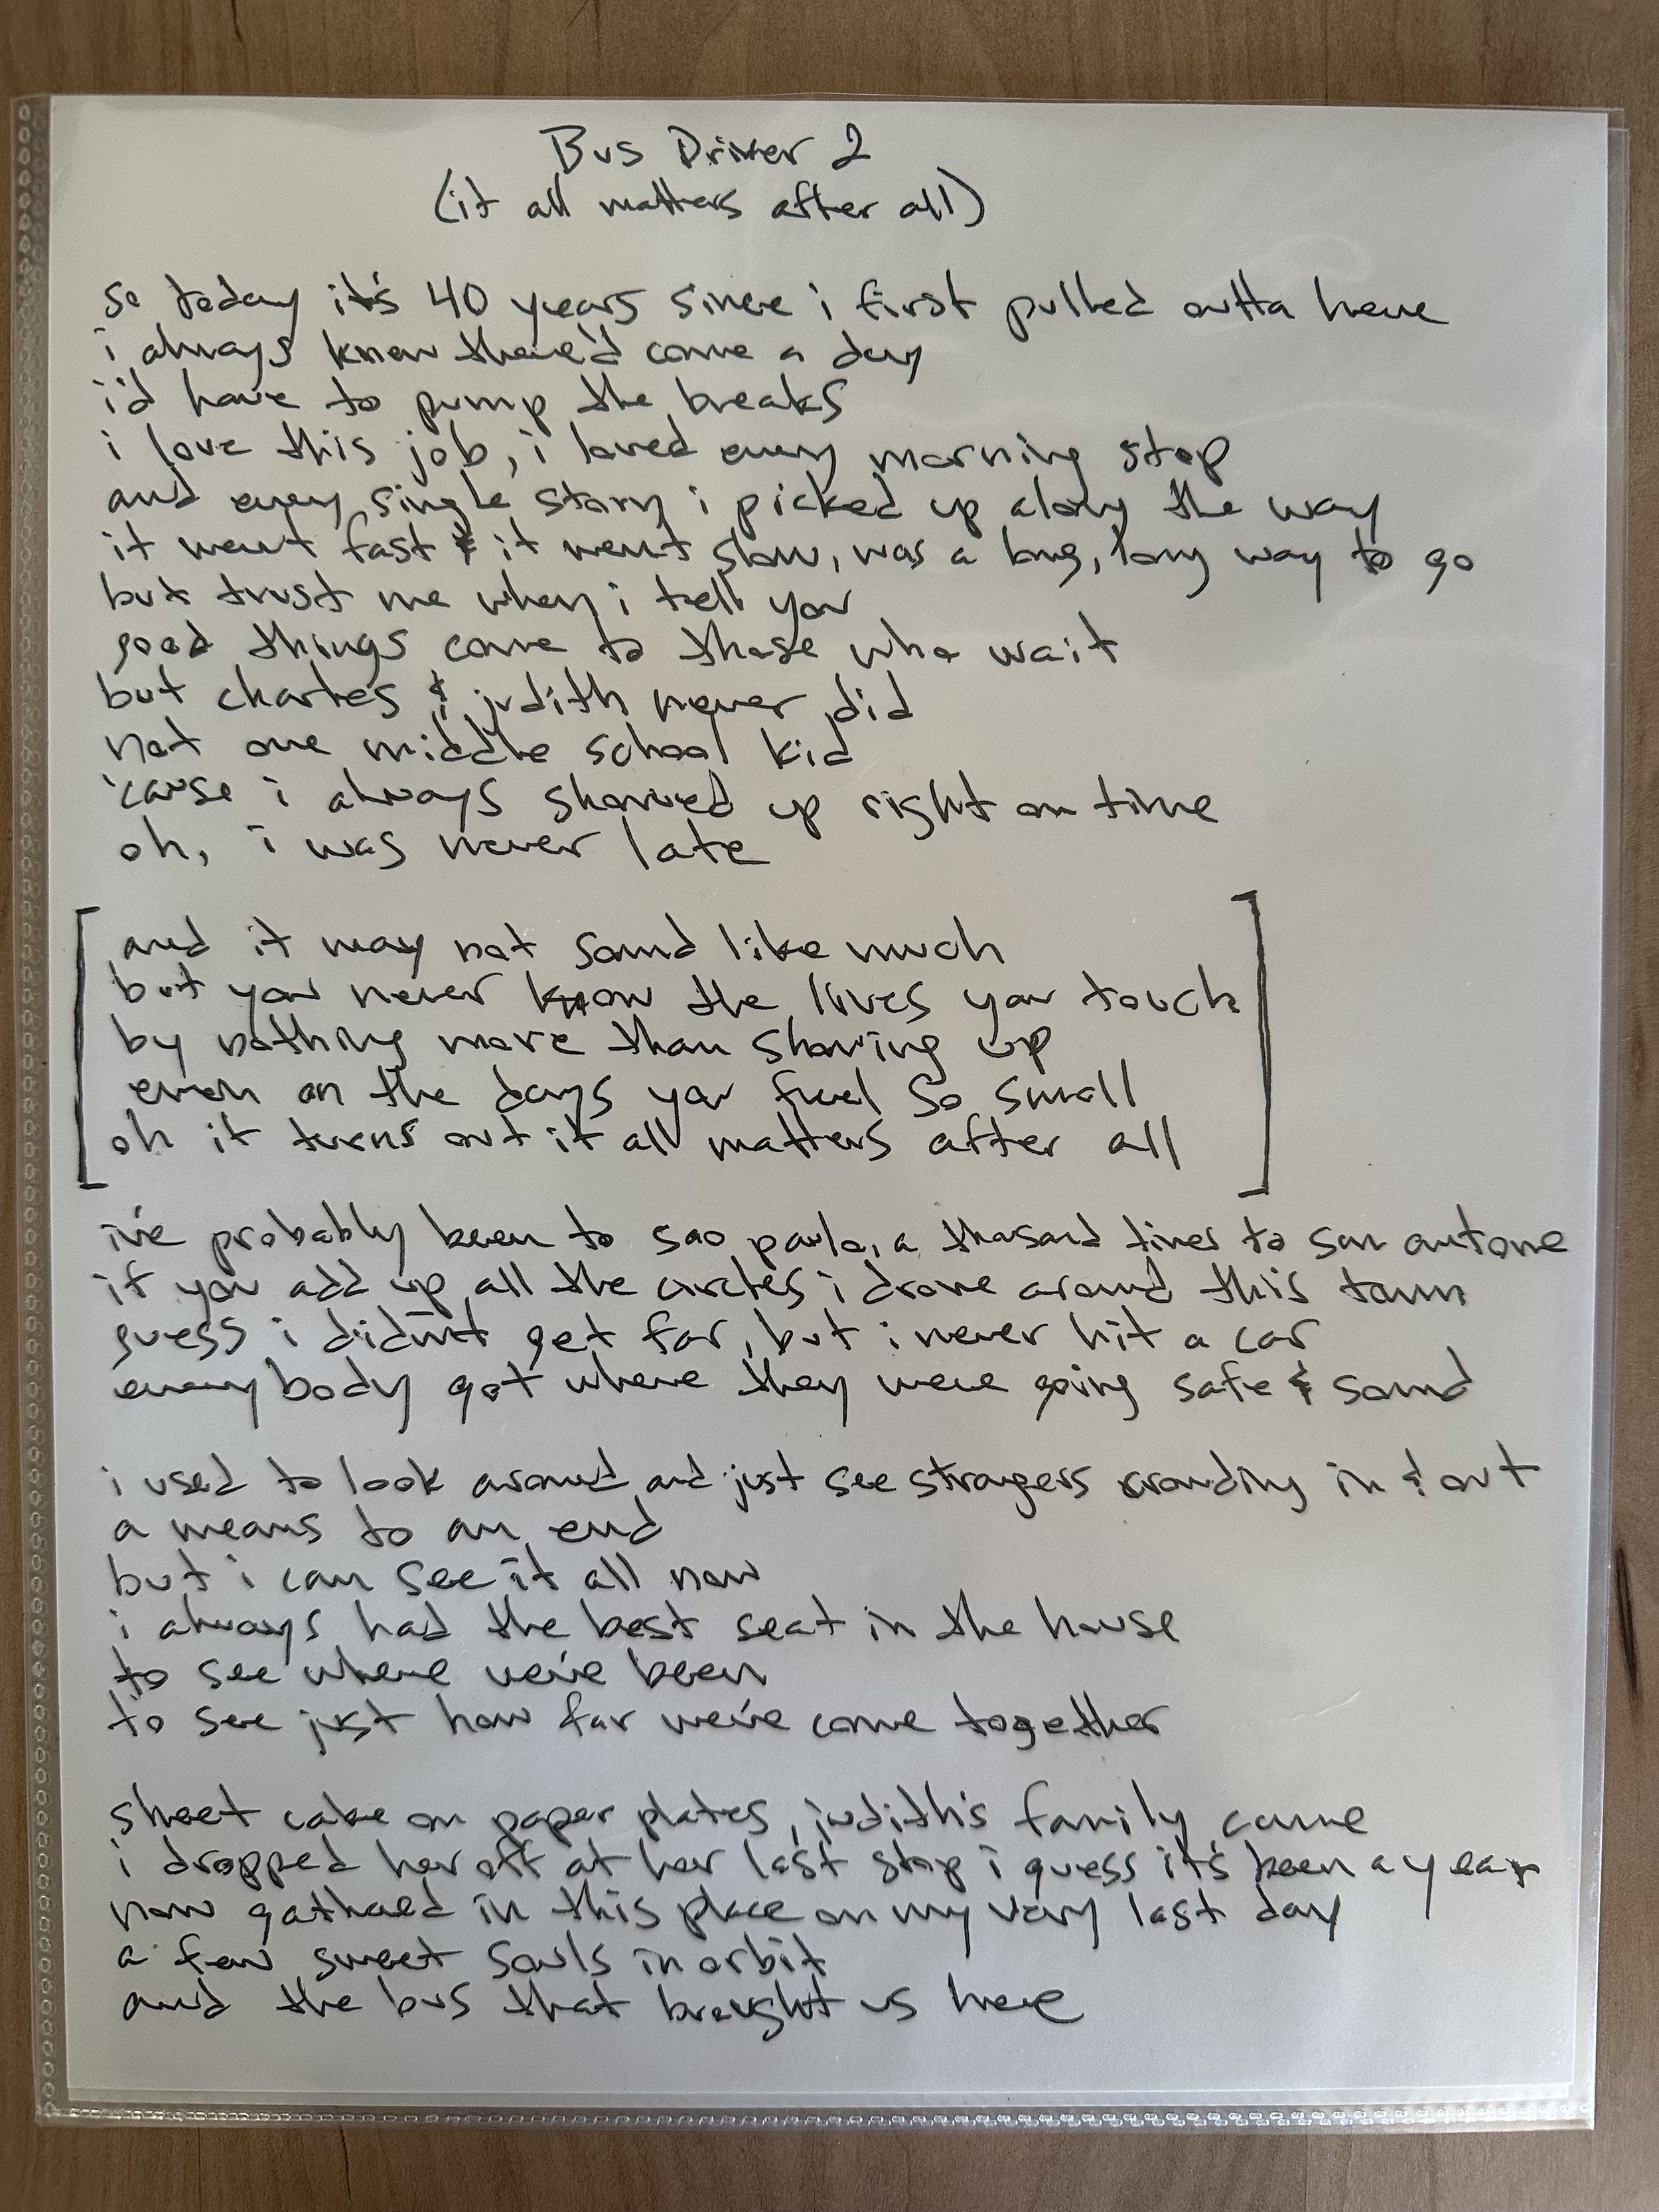 Bus Driver 2
(it all matters after all)
so today it's 40 years since i first pulled outta here
i always knew there'd come a day
i'd have to pump the breaks
i love this job, i loved every morning stop
and every single story i picked up along the way
it went fast & it went slow, was a long, long way to go
but trust me when i tell you
good things come to those who wait
but charles & judith never did
not one middle school kid
'cause i always showed up right on time
oh, i was never late
[and it may not sound like much
but you never know the lives you touch
by nothing more than showing up
even on the days you feel so small
oh it turns out it all matters after all]
i've probably been to sao paulo, a thousand times to san antone
if you add up all the circles i drove around this town
guess i didn't get far, but i never hit a car
everybody got where they were going safe & sound
i used to look around and just see strangers crowding in & out
a means to an end
but i can see it all now
i always had the best seat in the house
to see where we've been
to see just how far we've come together
sheet cake on paper plates, judith's family came
i dropped her off at her last stop i guess it's been a year
now gathered in this place on my very last day
a few sweet souls in orbit
and the bus that brought us here